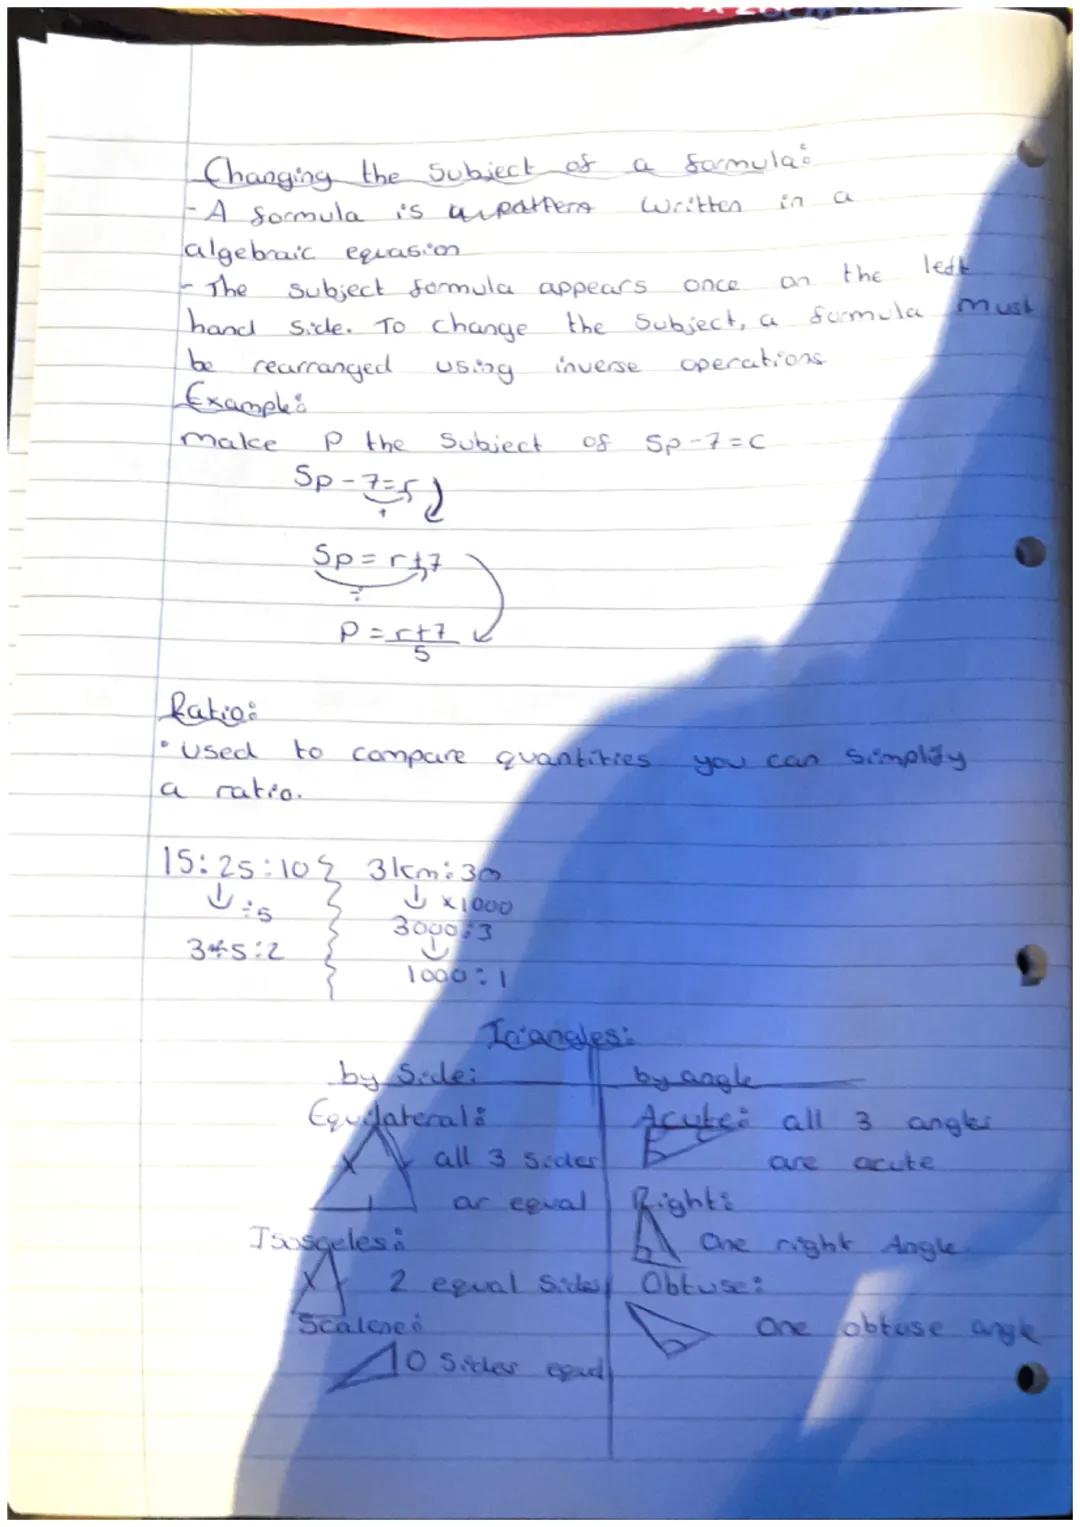 Changing the Subject of a formula:
- A formula is a pattern written in a
algebraic equasion
- The subject formula appears once on the left
hand side. To change the subject, a formula must
be rearranged using inverse operations
Example:
make P the Subject of 5p-7=C
5p-7=r
+
5p=r+7
÷
P=r+7
5
Ratio:
• Used to compare quantities you can simplify
a ratio.
15:25:10 3km:3m
↓÷5 ↓ x1000
3000:3
3:5:2 ↓
1000:1
Triangles:
by Side: by angle
Equilateral: Acute: all 3 angles
all 3 sides are acute
ar equal Right:
Isosgeles: One right Angle.
2 equal Sides Obtuse:
Scalene: One obtuse angle
0 Sides equal